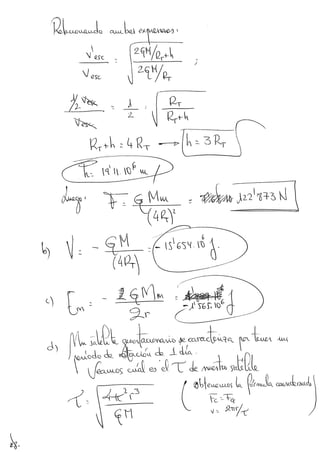 Relacionando ambas expresiones:
V'esc / Vesc = √(2GM/RT+h / 2GM/RT) ;
1/2 Vesc / Vesc = 1/2 = √(RT / RT+h)
RT+h = 4RT → h = 3RT
h = 19'11.10⁶ m
Luego: F = G Mm / (4RT)² = 122'873 N
b) V = - GM / (4RT) = - 15'654.10⁶ J.
c) Em = - GMm / 2r = - 1'565.10⁶ J
d) Un satélite geoestacionario se caracteriza por tener un
periodo de rotación de 1 día.
Veamos cuál es el τ de nuestro satélite
τ = √(4π²r³ / GM) (obtenemos la fórmula considerando
Fc = Fg
v = 2πr/τ